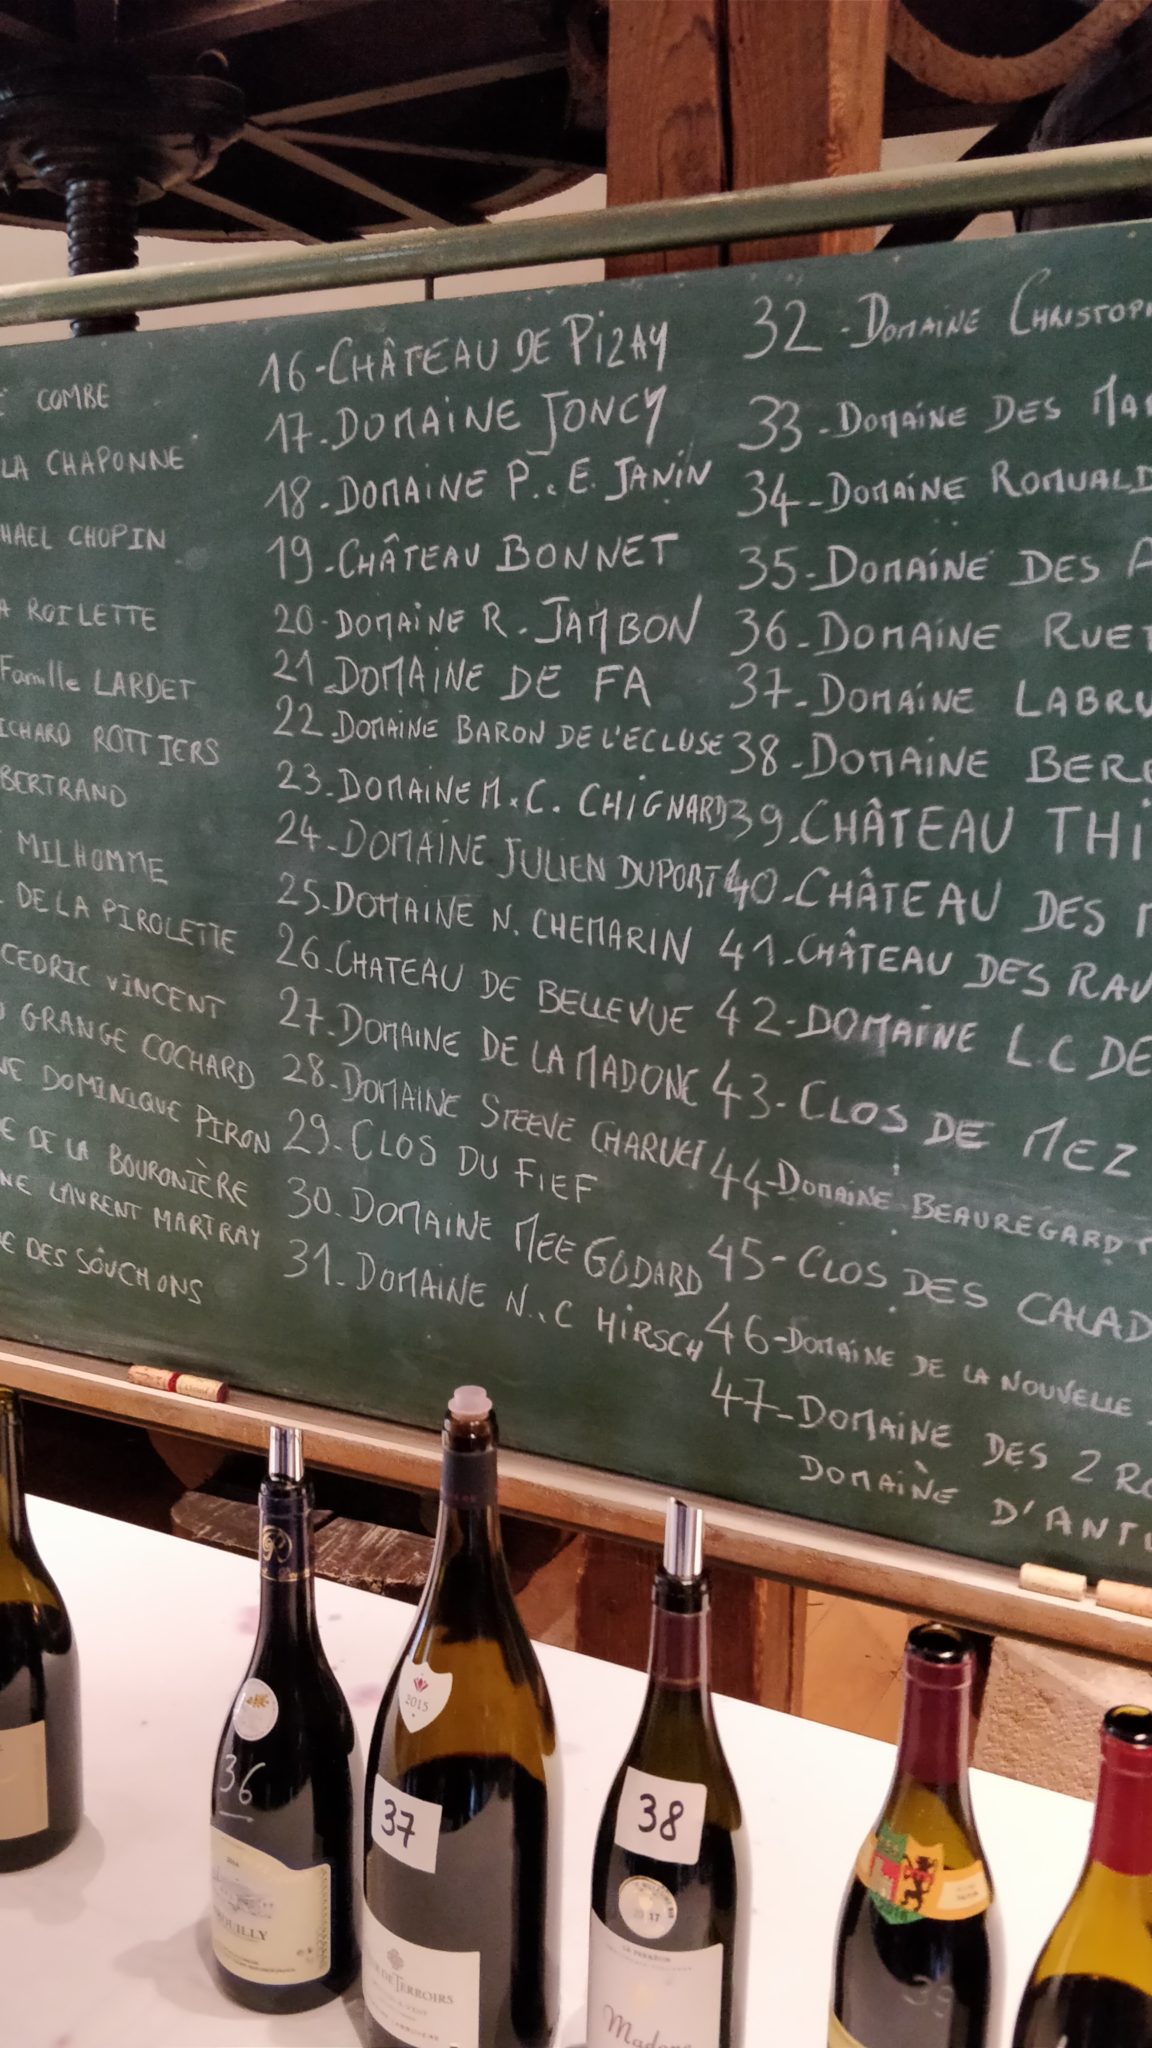 COMBE
LA CHAPONNE
CHOPIN
ROILETTE
Famille LARDET
ROTTIERS
BERTRAND
MILHOMME
DE LA PIROLETTE
CEDRIC VINCENT
GRANGE COCHARD
DOMINIQUE PIRON
DE LA BOURONIÈRE
LAURENT MARTRAY
DES SOUCHONS
16-CHÂTEAU DE PIZAY
17-DOMAINE JONCY
18-DOMAINE P.. E. JANIN
19-CHÂTEAU BONNET
20-DOMAINE R. JAMBON
21 DOMAINE DE FA
22-DOMAINE BARON DE L'ECLUSE
23-DOMAINE M.C. CHIGNARD
24-DOMAINE JULIEN DUPORT
25-DOMAINE N. CHEMARIN
26-CHATEAU DE BELLEVUE
27-DOMAINE DE LA MADONE
28-DOMAINE STEEVE CHARVET
29-CLOS DU FIEF
30-DOMAINE MEE GODARD
31-DOMAINE N..C HIRSCH
32-DOMAINE
33-DOMAINE DES
34-DOMAINE ROMUALD
35-DOMAINE DES
36-DOMAINE RUET
37-DOMAINE
38-DOMAINE
39-CHÂTEAU
40-CHÂTEAU DES
41-CHÂTEAU DES
42-DOMAINE L.C DE
43-CLOS DE MEZ
44-DOMAINE BEAUREGARD
45-CLOS DES
46-DOMAINE DE LA NOUVELLE
47-DOMAINE DES 2
DOMAINE
2015
36
37
38
39
2017
TERROIRS